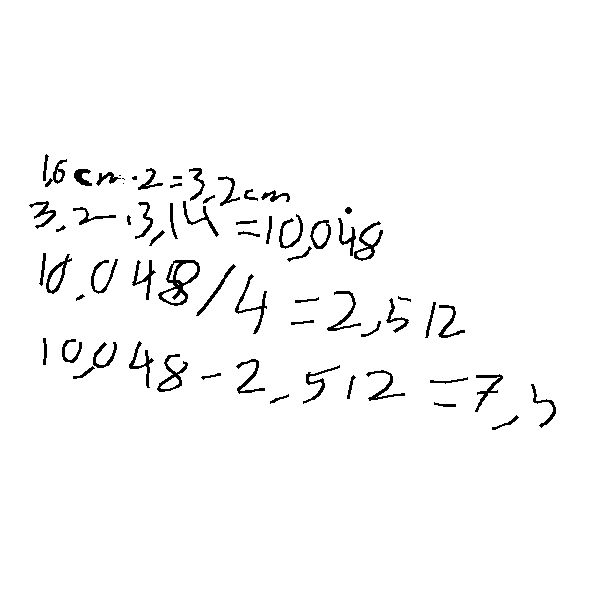 1,6 cm · 2 = 3,2 cm
3,2 · 3,14 = 10,048
10,048 / 4 = 2,512
10,048 - 2,512 = 7,5